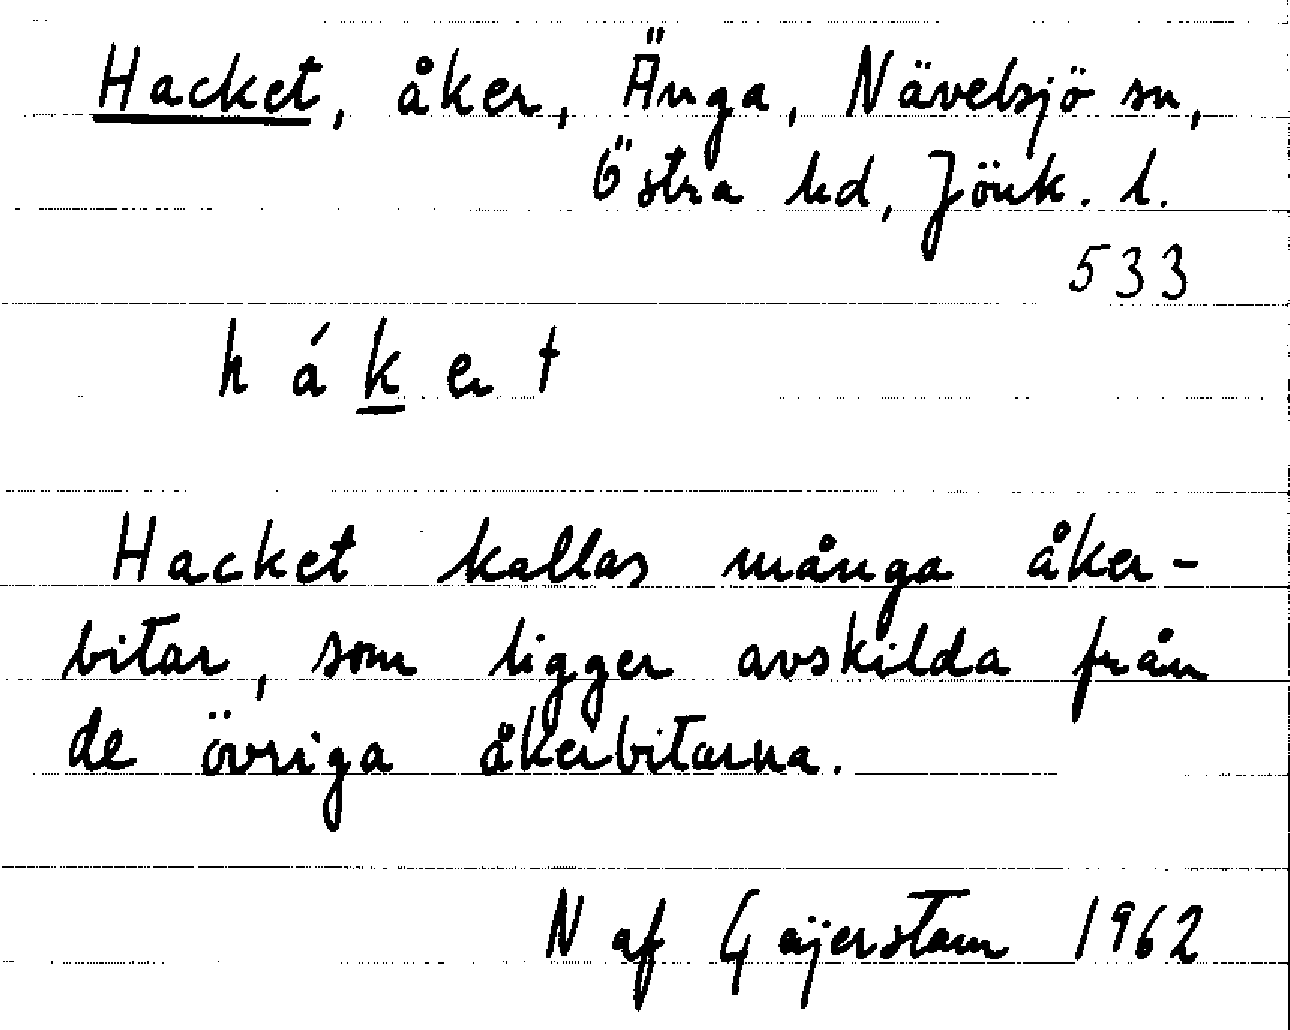 Hacket, åker, Änga, Nävelsjö sn,
Östra hd, Jönk. l.
533
h á k e t
Hacket kallas många åker-
bitar, som ligger avskilda från
de övriga åkerbitarna.
N af Gejerstam 1962